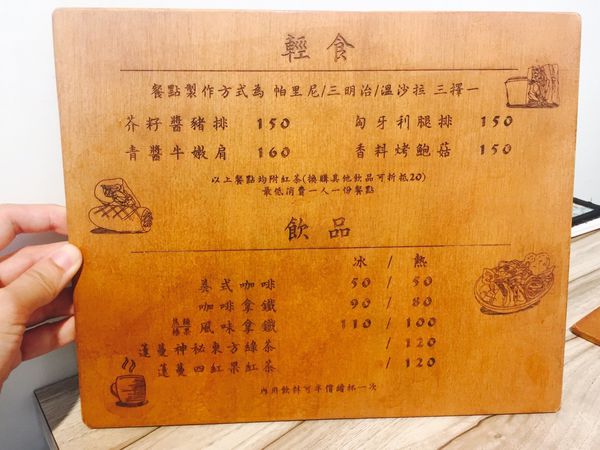 輕食
餐點製作方式為 帕里尼/三明治/溫沙拉 三擇一
芥籽醬豬排 150 匈牙利腿排 150
青醬牛嫩肩 160 香料烤鮑菇 150
以上餐點均附紅茶(換購其他飲品可折抵20)
最低消費一人一份餐點
飲品
冰 / 熱
美式咖啡 50 / 50
咖啡拿鐵 90 / 80
焦糖 榛果 風味拿鐵 110 / 100
蓮蔓神秘東方綠茶 / 120
蓮蔓四紅果紅茶 / 120
內用飲料可半價續杯一次